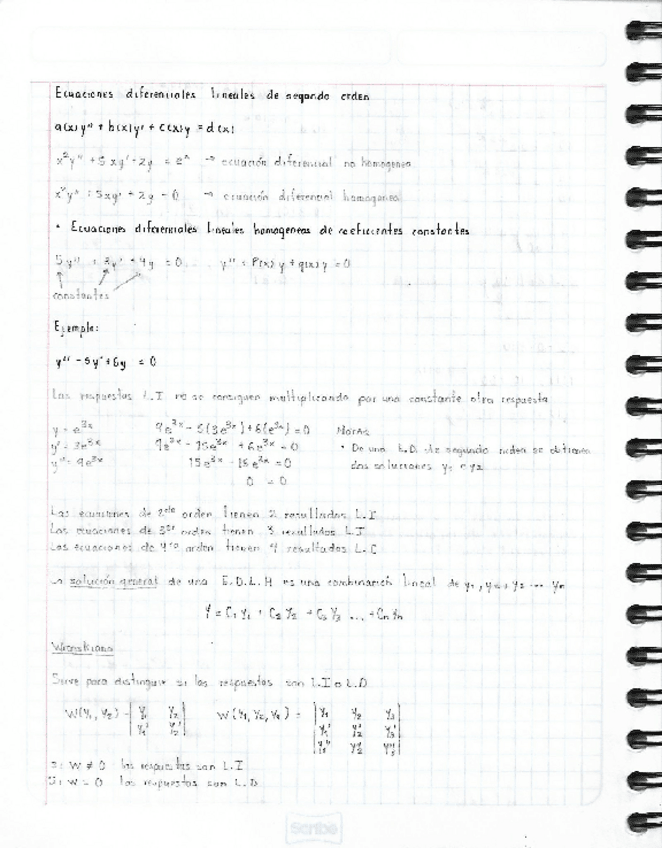 Ecuaciones diferenciales lineales de segundo orden
a(x)y'' + b(x)y' + c(x)y = d(x)
x²y'' + 5xy' - 2y = eˣ → ecuación diferencial no homogenea
x²y'' + 5xy' + 2y = 0 → ecuación diferencial homogenea
• Ecuaciones diferenciales lineales homogeneas de coeficientes constantes
5y'' + 3y' + 4y = 0 ... y'' + P(x)y + q(x)y = 0
constantes
Ejemplo:
y'' - 5y' + 6y = 0
Las respuestas L.I no se consiguen multiplicando por una constante otra respuesta
y = e³ˣ 9e³ˣ - 5(3e³ˣ) + 6(e³ˣ) = 0 Notas
y' = 3e³ˣ 9e³ˣ - 15e³ˣ + 6e³ˣ = 0 • De una E.D. de segundo orden se obtienen
y'' = 9e³ˣ 15e³ˣ - 15e³ˣ = 0 dos soluciones y₁ y₂
0 = 0
Las ecuaciones de 2do orden tienen 2 resultados L.I
Las ecuaciones de 3er orden tienen 3 resultados L.I
Las ecuaciones de 4to orden tienen 4 resultados L.I
La solución general de una E.D.L.H es una combinación lineal de y₁, y₂, y₃ ... yₙ
Y = C₁Y₁ + C₂Y₂ + C₃Y₃ ... + CₙYₙ
Wronskiano
Sirve para distinguir si las respuestas son L.I o L.D
W(Y₁, Y₂) = | Y₁ Y₂ | W(Y₁, Y₂, Y₃) = | Y₁ Y₂ Y₃ |
| Y₁' Y₂' | | Y₁' Y₂' Y₃' |
| Y₁'' Y₂'' Y₃'' |
Si W ≠ 0 las respuestas son L.I
Si W = 0 las respuestas son L.D
Scribe